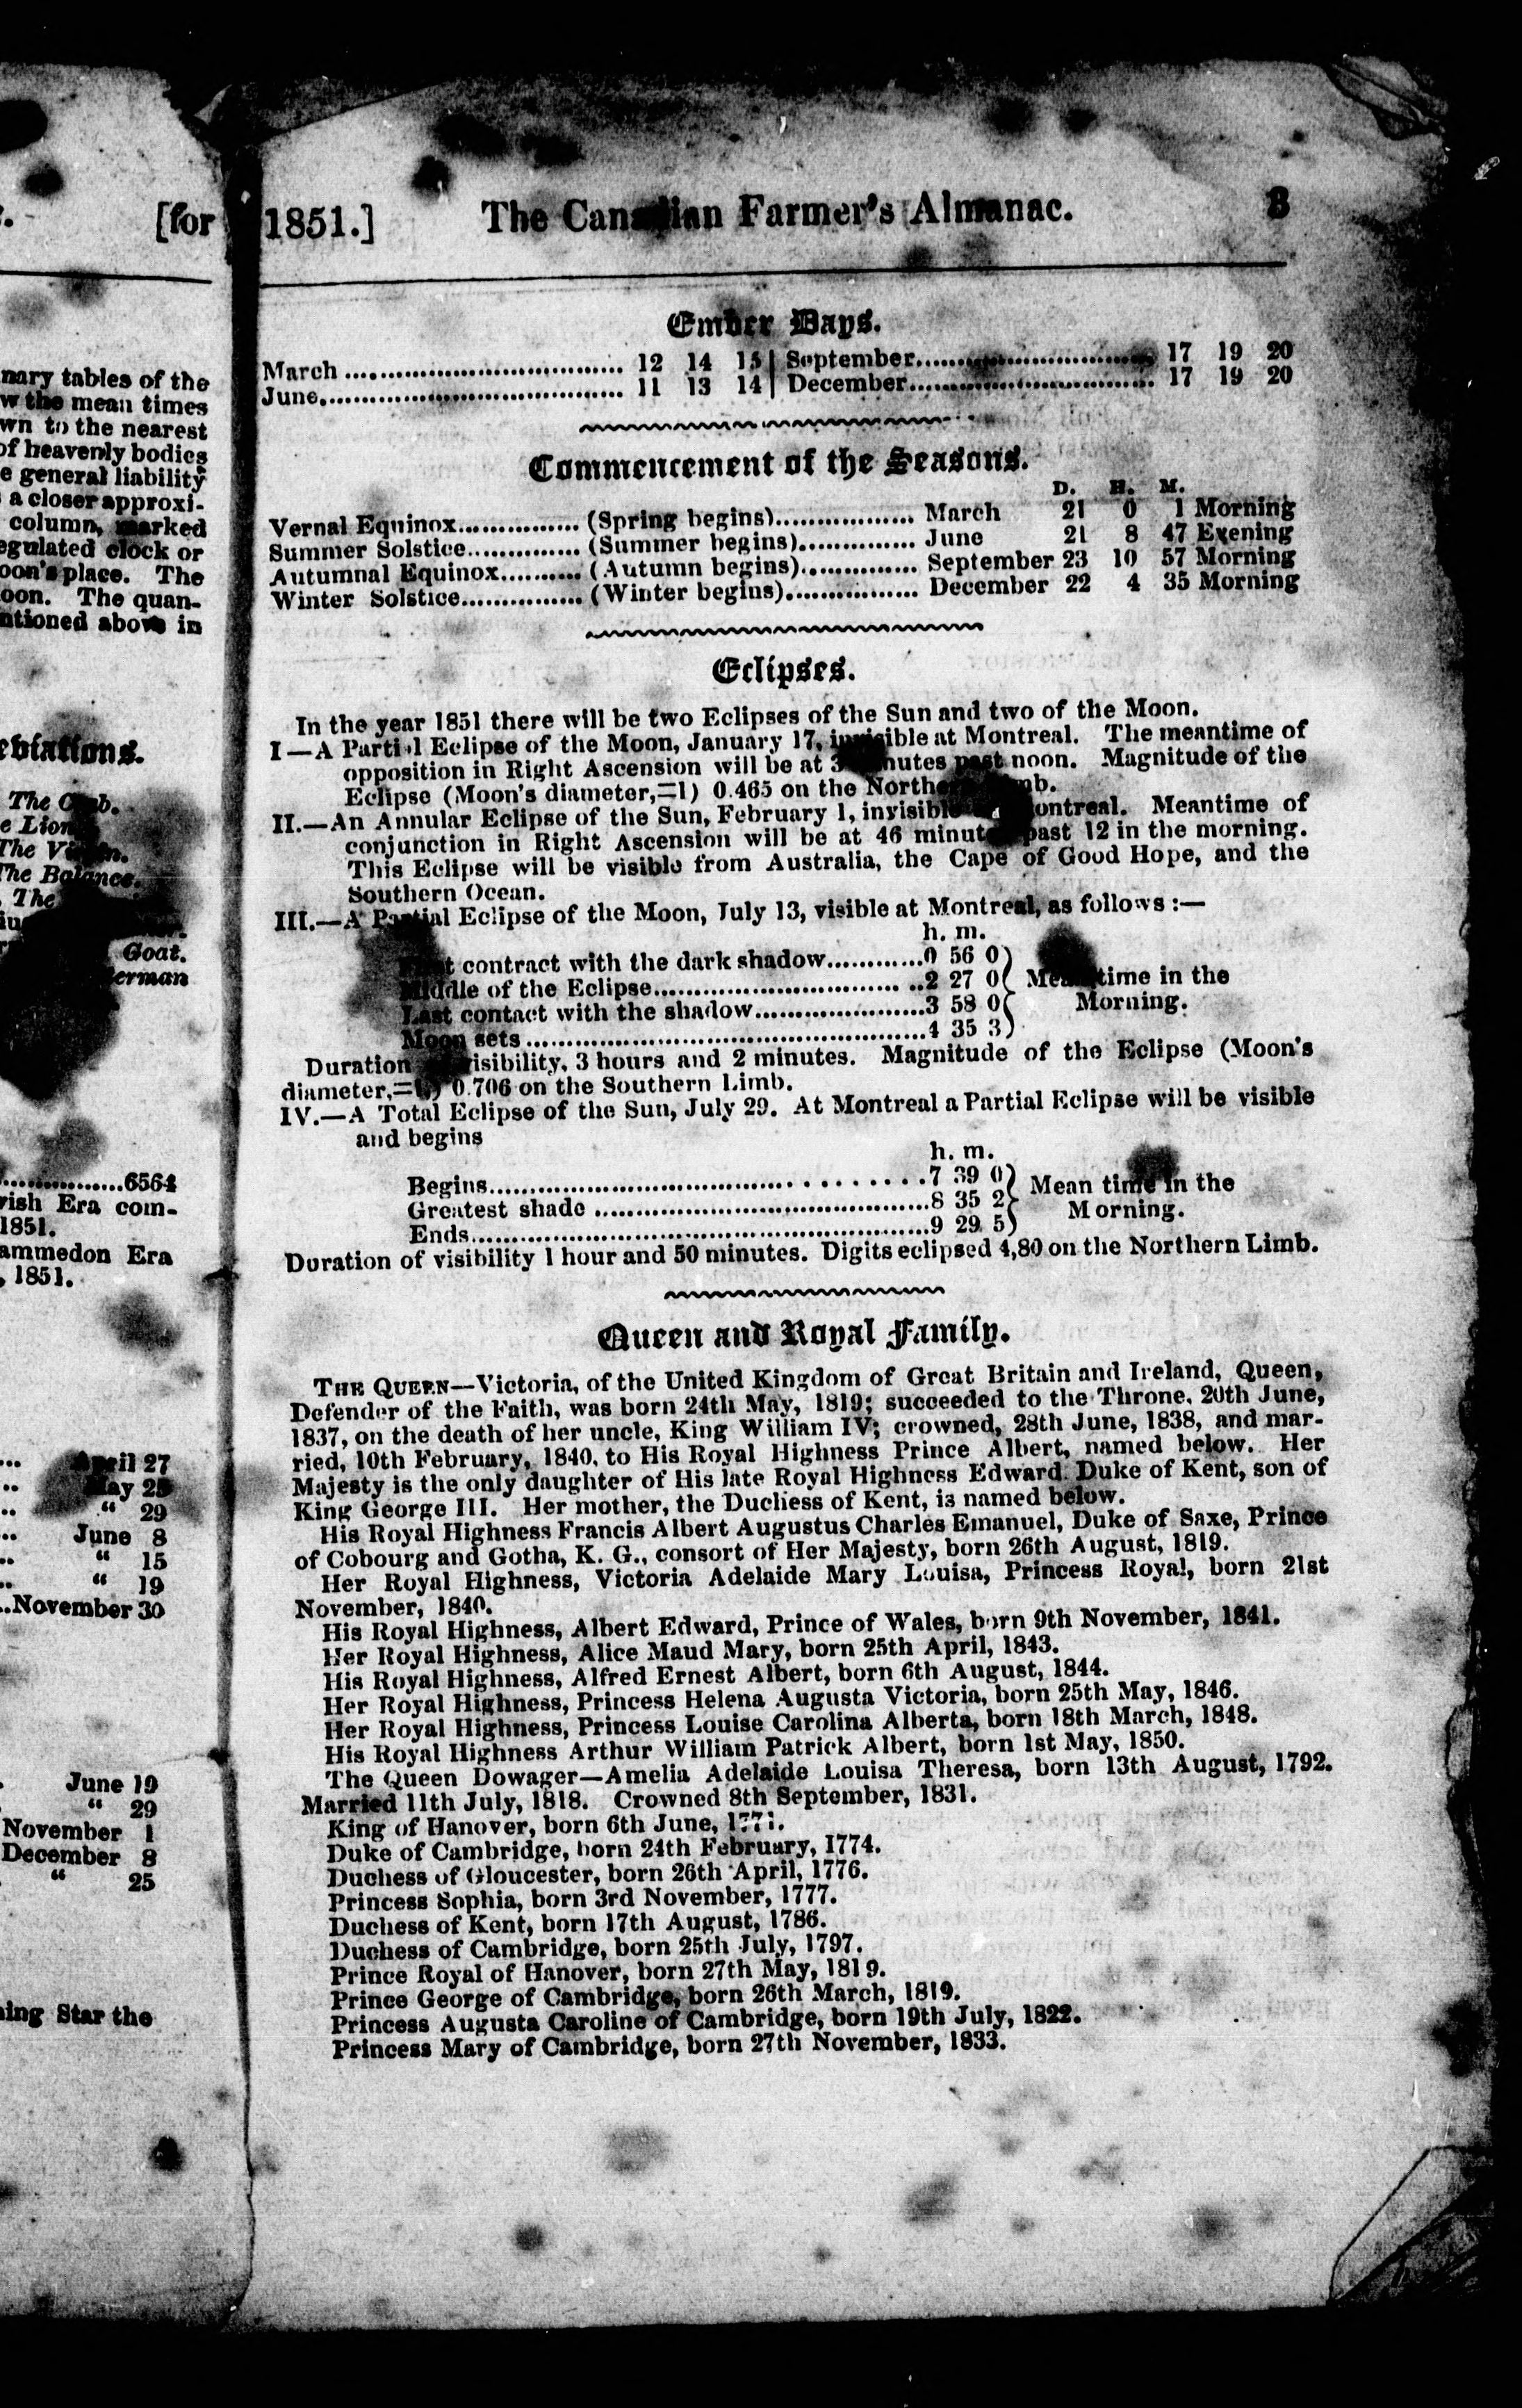 [for
nary tables of the
w the mean times
wn to the nearest
of heavenly bodies
e general liability
a closer approxi-
column, marked
egulated clock or
oon's place. The
oon. The quan-
ntioned above in
eviations.
The
e Lion
The
The Balance.
The
Goat.
erman
6564
ish Era com-
1851.
ammedon Era
, 1851.
April 27
May 25
" 29
June 8
" 15
" 19
November 30
June 19
" 29
November 1
December 8
" 25
ing Star the
1851.] The Canadian Farmer's Almanac. 3
Ember Days.
March ................................. 12 14 15 | September............................. 17 19 20
June.................................... 11 13 14 | December.............................. 17 19 20
Commencement of the Seasons.
D. H. M.
Vernal Equinox............... (Spring begins)................. March 21 0 1 Morning
Summer Solstice.............. (Summer begins).............. June 21 8 47 Evening
Autumnal Equinox.......... (Autumn begins).............. September 23 10 57 Morning
Winter Solstice............... (Winter begins)................ December 22 4 35 Morning
Eclipses.
In the year 1851 there will be two Eclipses of the Sun and two of the Moon.
I—A Partial Eclipse of the Moon, January 17, invisible at Montreal. The meantime of
opposition in Right Ascension will be at minutes past noon. Magnitude of the
Eclipse (Moon's diameter,=1) 0.465 on the Northern Limb.
II.—An Annular Eclipse of the Sun, February 1, invisible Montreal. Meantime of
conjunction in Right Ascension will be at 46 minutes past 12 in the morning.
This Eclipse will be visible from Australia, the Cape of Good Hope, and the
Southern Ocean.
III.—A Partial Eclipse of the Moon, July 13, visible at Montreal, as follows :—
h. m.
First contract with the dark shadow............0 56 0)
Middle of the Eclipse................................2 27 0( Mean time in the
Last contact with the shadow.....................3 58 0( Morning.
Moon sets ................................................4 35 3)
Duration visibility, 3 hours and 2 minutes. Magnitude of the Eclipse (Moon's
diameter,=1) 0.706 on the Southern Limb.
IV.—A Total Eclipse of the Sun, July 29. At Montreal a Partial Eclipse will be visible
and begins
h. m.
Begins..................................................7 39 0)
Greatest shade .......................................8 35 2} Mean time in the
Ends......................................................9 29 5) Morning.
Duration of visibility 1 hour and 50 minutes. Digits eclipsed 4,80 on the Northern Limb.
Queen and Royal Family.
THE QUEEN—Victoria, of the United Kingdom of Great Britain and Ireland, Queen,
Defender of the Faith, was born 24th May, 1819; succeeded to the Throne, 20th June,
1837, on the death of her uncle, King William IV; crowned, 28th June, 1838, and mar-
ried, 10th February, 1840, to His Royal Highness Prince Albert, named below. Her
Majesty is the only daughter of His late Royal Highness Edward Duke of Kent, son of
King George III. Her mother, the Duchess of Kent, is named below.
His Royal Highness Francis Albert Augustus Charles Emanuel, Duke of Saxe, Prince
of Cobourg and Gotha, K. G., consort of Her Majesty, born 26th August, 1819.
Her Royal Highness, Victoria Adelaide Mary Louisa, Princess Royal, born 21st
November, 1840.
His Royal Highness, Albert Edward, Prince of Wales, born 9th November, 1841.
Her Royal Highness, Alice Maud Mary, born 25th April, 1843.
His Royal Highness, Alfred Ernest Albert, born 6th August, 1844.
Her Royal Highness, Princess Helena Augusta Victoria, born 25th May, 1846.
Her Royal Highness, Princess Louise Carolina Alberta, born 18th March, 1848.
His Royal Highness Arthur William Patrick Albert, born 1st May, 1850.
The Queen Dowager—Amelia Adelaide Louisa Theresa, born 13th August, 1792.
Married 11th July, 1818. Crowned 8th September, 1831.
King of Hanover, born 6th June,
Duke of Cambridge, born 24th February, 1774.
Duchess of Gloucester, born 26th April, 1776.
Princess Sophia, born 3rd November, 1777.
Duchess of Kent, born 17th August, 1786.
Duchess of Cambridge, born 25th July, 1797.
Prince Royal of Hanover, born 27th May, 1819.
Prince George of Cambridge, born 26th March, 1819.
Princess Augusta Caroline of Cambridge, born 19th July, 1822.
Princess Mary of Cambridge, born 27th November, 1833.